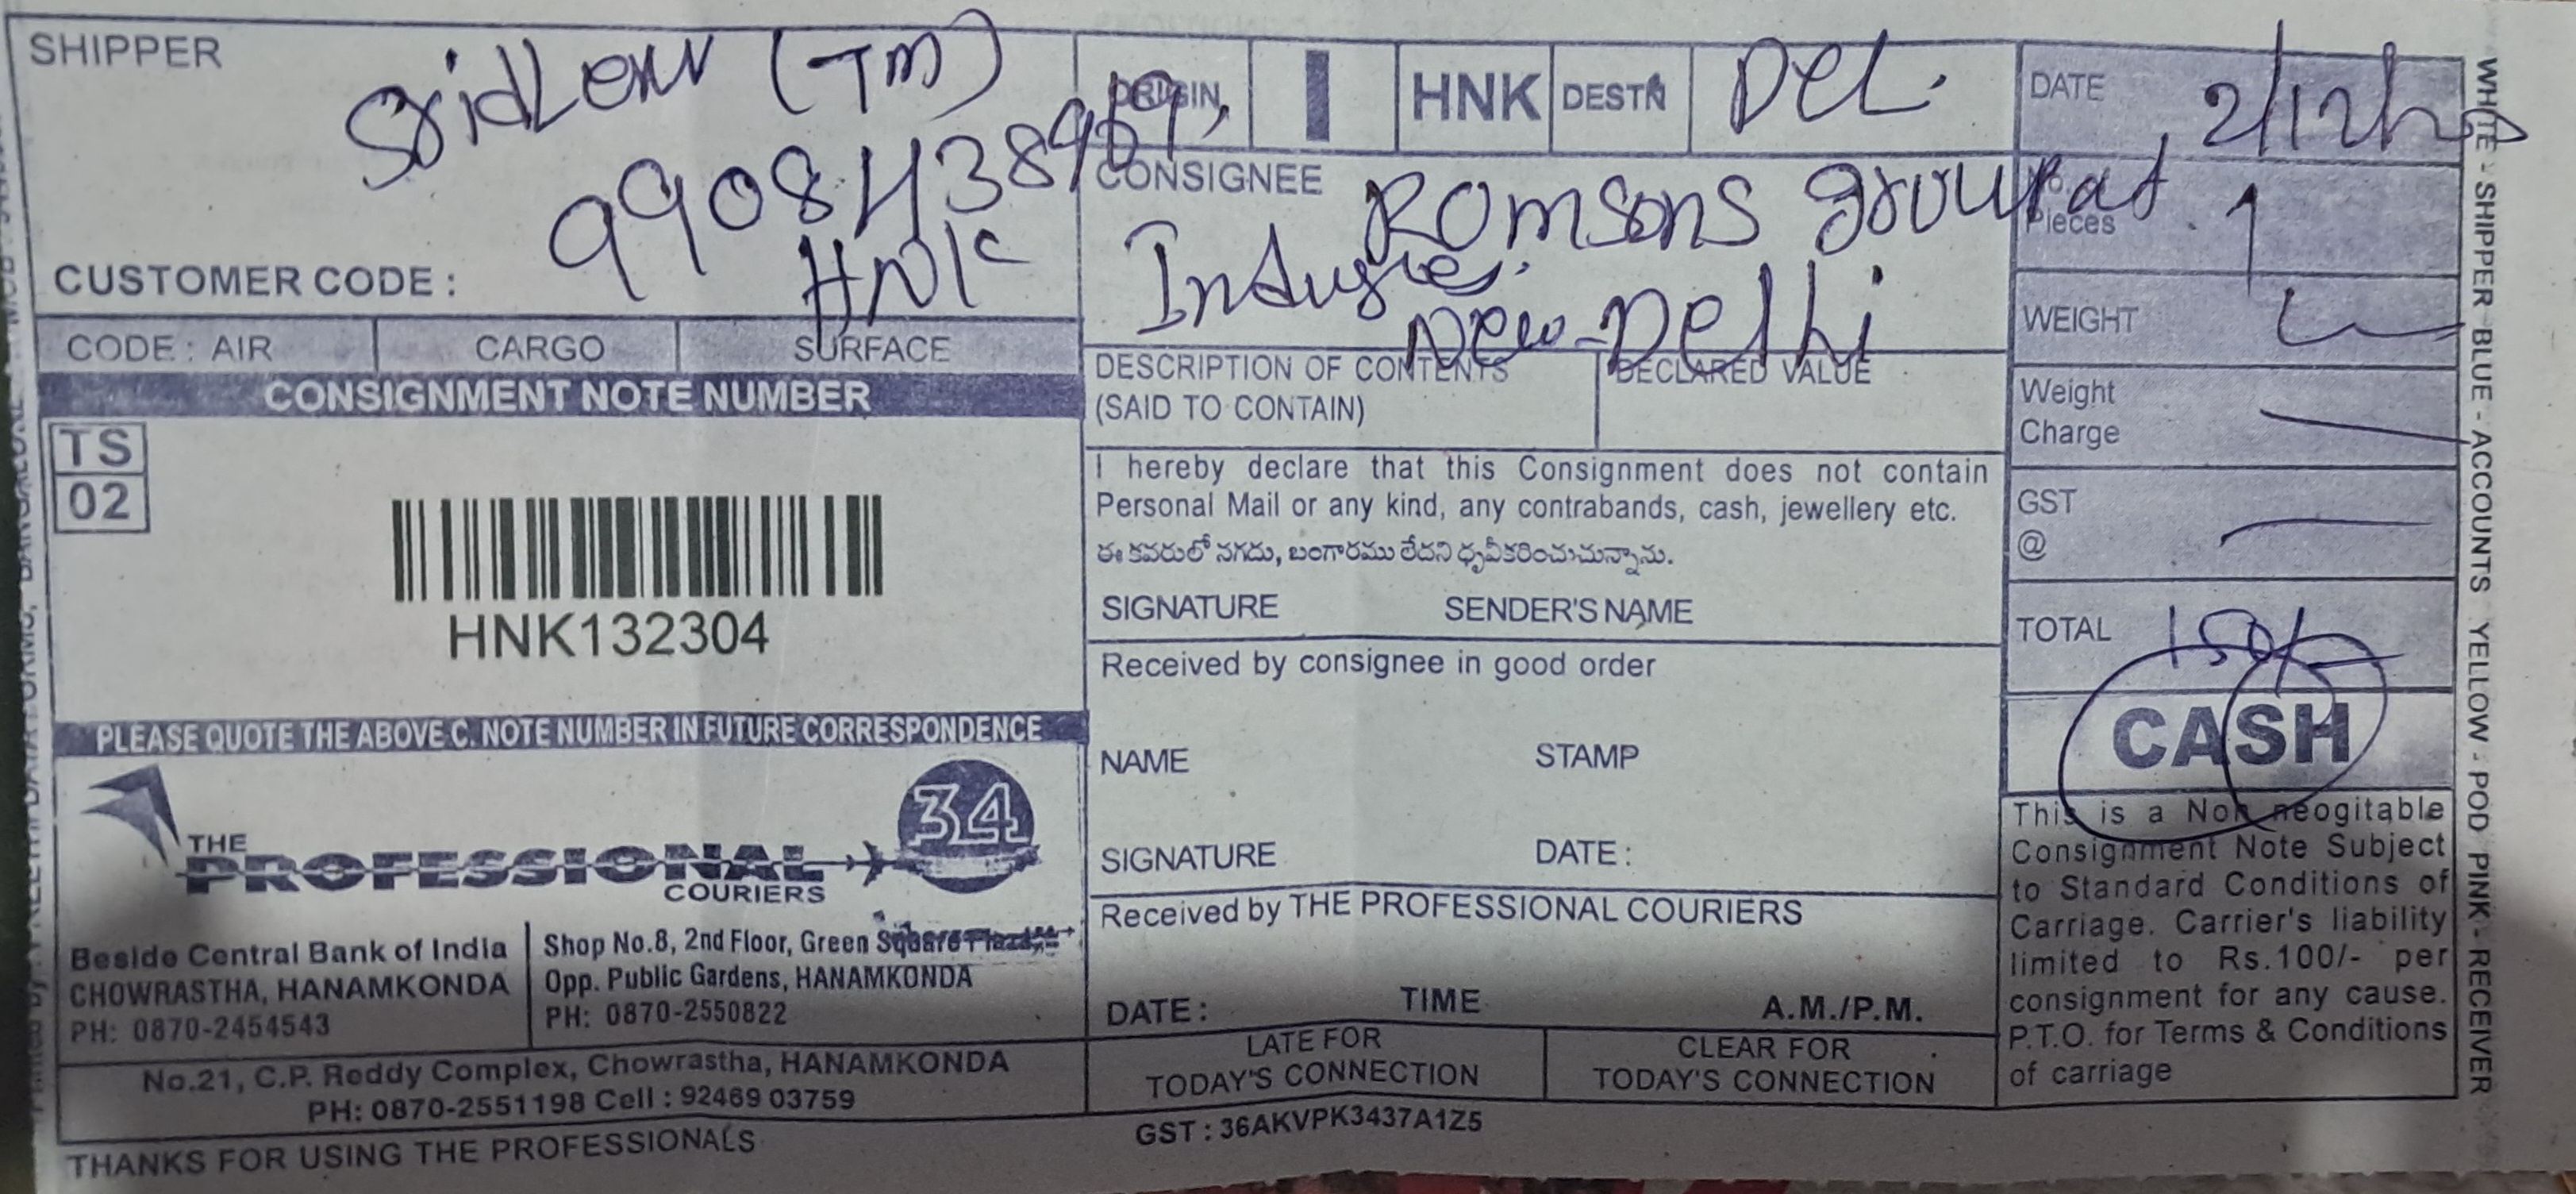 SHIPPER
(TM)
HNK
CUSTOMER CODE :
CODE : AIR
CARGO
SURFACE
CONSIGNMENT NOTE NUMBER
TS
02
HNK132304
PLEASE QUOTE THE ABOVE C. NOTE NUMBER IN FUTURE CORRESPONDENCE
34
THE
PROFESSIONAL
COURIERS
Beside Central Bank of India
CHOWRASTHA, HANAMKONDA
PH: 0870-2454543
Shop No.8, 2nd Floor, Green Square Plaza,
Opp. Public Gardens, HANAMKONDA
PH: 0870-2550822
No.21, C.P. Reddy Complex, Chowrastha, HANAMKONDA
PH: 0870-2551198 Cell : 92469 03759
THANKS FOR USING THE PROFESSIONALS
ORIGIN
HNK
DESTN
DEL.
CONSIGNEE
Romsons
New-Delhi
DESCRIPTION OF CONTENTS
(SAID TO CONTAIN)
DECLARED VALUE
I hereby declare that this Consignment does not contain
Personal Mail or any kind, any contrabands, cash, jewellery etc.
ఈ కవరులో నగదు, బంగారము లేదని ధృవీకరించుచున్నాను.
SIGNATURE
SENDER'S NAME
Received by consignee in good order
NAME
STAMP
SIGNATURE
DATE :
Received by THE PROFESSIONAL COURIERS
DATE :
TIME
A.M./P.M.
LATE FOR
TODAY'S CONNECTION
CLEAR FOR
TODAY'S CONNECTION
GST : 36AKVPK3437A1Z5
DATE
No.
Pieces
1
WEIGHT
Weight
Charge
GST
@
TOTAL
150/-
CASH
This is a Non neogitable
Consignment Note Subject
to Standard Conditions of
Carriage. Carrier's liability
limited to Rs.100/- per
consignment for any cause.
P.T.O. for Terms & Conditions
of carriage
WHITE - SHIPPER BLUE - ACCOUNTS YELLOW - POD PINK - RECEIVER